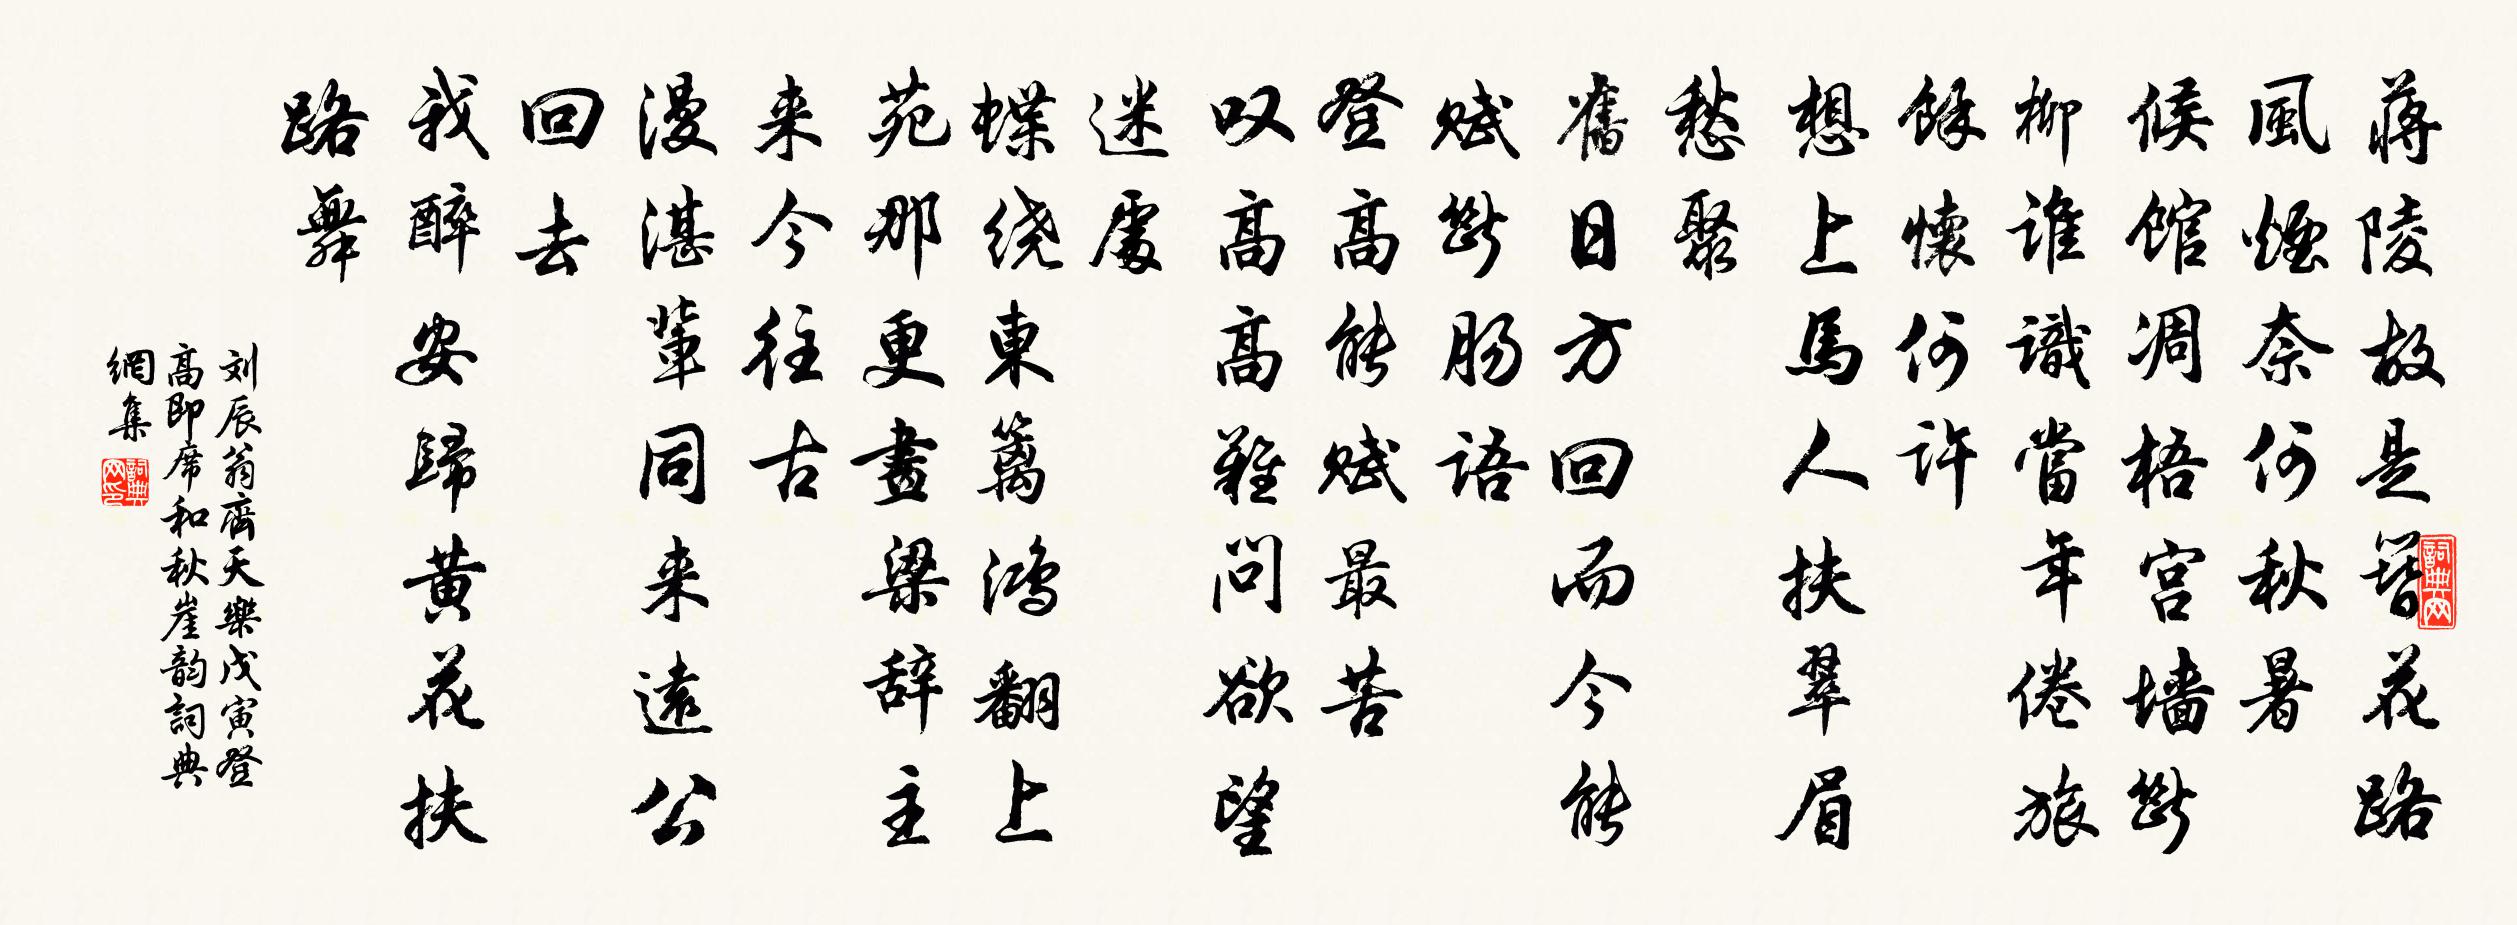 蒋陵故是簪花路
風煙奈何秋暑
候館凋梧宫墙斷
柳谁識當年倦旅
餘懷何许
想上馬人扶翠眉
愁聚
舊日方回而今能
赋斷肠语
登高能赋最苦
叹高高難问欲望
迷處
蝶绕東篱鸿翻上
苑那更畫梁辞主
来今往古
漫湛輩同来遠公
回去
我醉安歸黄花扶
路舞
刘辰翁齊天樂戊寅登
高即席和秋崖韵詞典
網集
詞典网
詞典网印